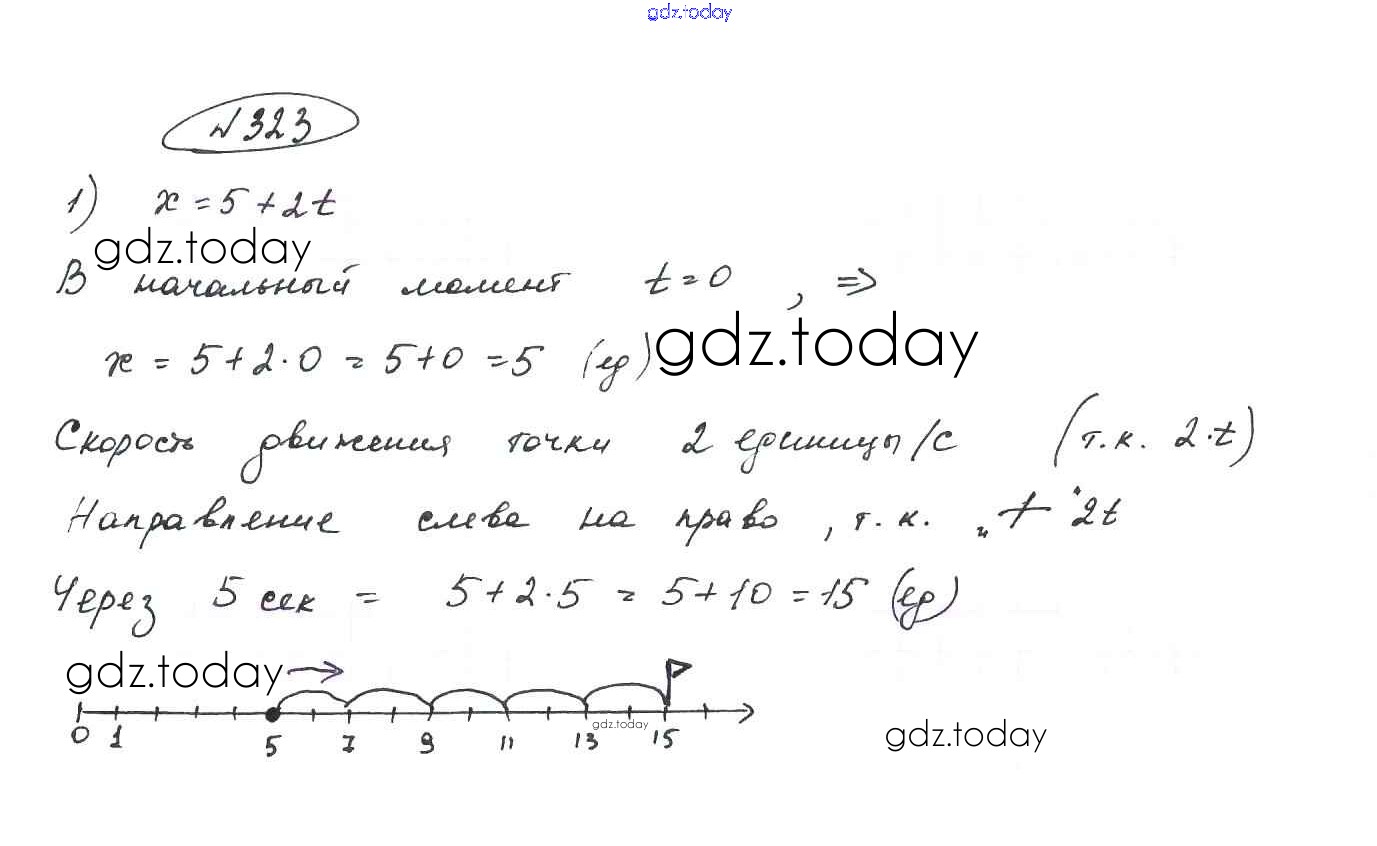 gdz.today
N 323
1) x = 5 + 2t
gdz.today
В начальный момент t = 0 , ⇒
x = 5 + 2·0 = 5 + 0 = 5 (ед) gdz.today
Скорость движения точки 2 единицы/с (т.к. 2·t)
Направление слева на право , т.к. „+" 2t
Через 5 сек = 5 + 2·5 = 5 + 10 = 15 (ед)
gdz.today
gdz.today
0 1 5 7 9 11 13 15
gdz.today